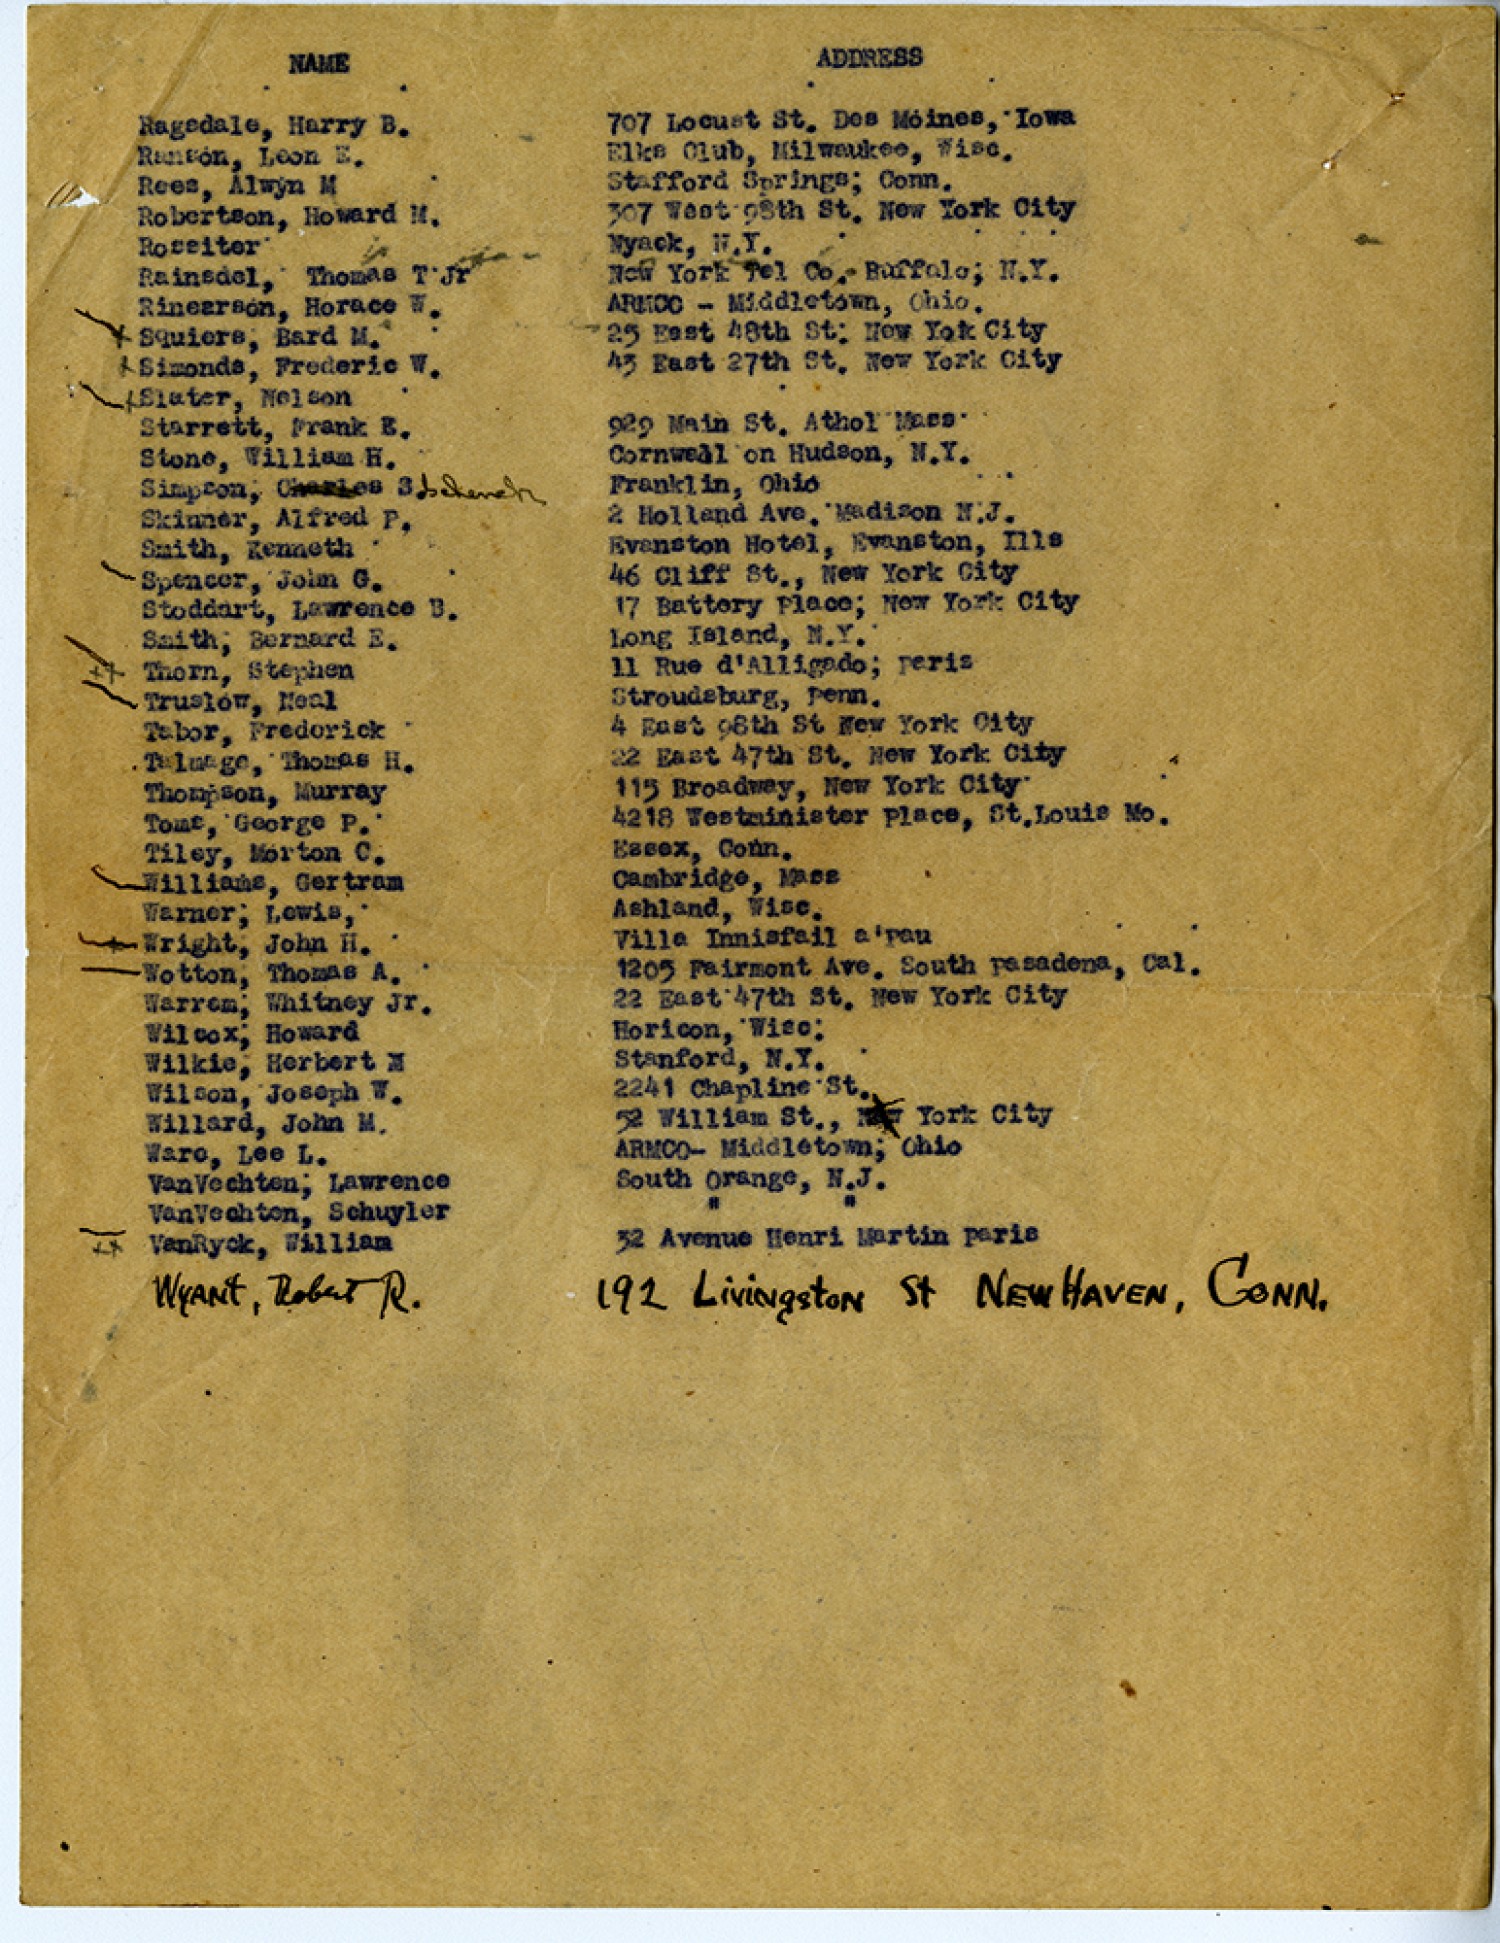 NAME ADDRESS
Ragsdale, Harry B. 707 Locust St. Des Moines, Iowa
Ranson, Leon E. Elks Club, Milwaukee, Wisc.
Rees, Alwyn M Stafford Springs; Conn.
Robertson, Howard M. 307 West 98th St. New York City
Rossiter Nyack, N.Y.
Rainsdel, Thomas T Jr New York Tel Co. Buffalo; N.Y.
Rinearson, Horace W. ARMCO - Middletown, Ohio.
Squiers, Bard M. 25 East 48th St: New Yok City
Simonds, Frederic W. 43 East 27th St. New York City
Slater, Nelson
Starrett, Frank E. 929 Main St. Athol Mass
Stone, William H. Cornwall on Hudson, N.Y.
Simpson, Charles S. Schenck Franklin, Ohio
Skinner, Alfred P. 2 Holland Ave. Madison N.J.
Smith, Kenneth Evanston Hotel, Evanston, Ills
Spencer, John G. 46 Cliff St., New York City
Stoddart, Lawrence B. 17 Battery Place; New York City
Smith; Bernard E. Long Island, N.Y.
Thorn, Stephen 11 Rue d'Alligado; Paris
Truslow, Neal Stroudsburg, Penn.
Tabor, Frederick 4 East 98th St New York City
Talmage, Thomas H. 22 East 47th St. New York City
Thompson, Murray 115 Broadway, New York City
Toms, George P. 4218 Westminister Place, St.Louis Mo.
Tiley, Morton C. Essex, Conn.
Williams, Gertram Cambridge, Mass
Warner; Lewis, Ashland, Wisc.
Wright, John H. Villa Innisfail a'Pau
Wotton, Thomas A. 1205 Fairmont Ave. South Pasadena, Cal.
Warrem; Whitney Jr. 22 East 47th St. New York City
Wilcox; Howard Horicon, Wisc:
Wilkie, Herbert M Stanford, N.Y.
Wilson, Joseph W. 2241 Chapline St.
Willard, John M. 52 William St., New York City
Ware, Lee L. ARMCO- Middletown; Ohio
VanVechten; Lawrence South Orange, N.J.
VanVechten, Schuyler " "
VanRyck, William 32 Avenue Henri Martin Paris
Wyant, Robert R. 192 Livingston St New Haven, Conn.